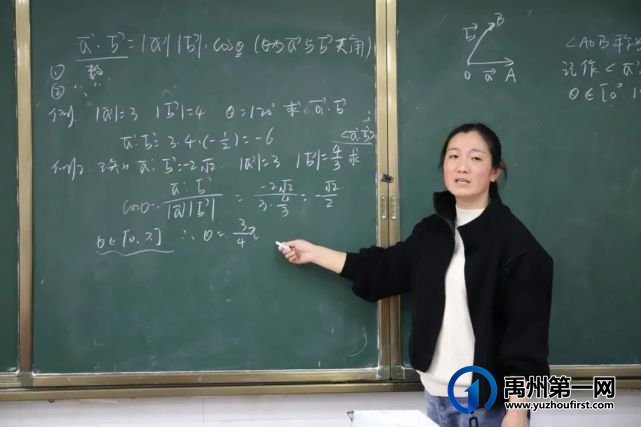 a⃗·b⃗=|a⃗||b⃗|·cosθ (θ为a⃗与b⃗夹角)
① 数
②
例1. |a⃗|=3 |b⃗|=4 θ=120° 求 a⃗·b⃗
a⃗·b⃗=3·4·(-1/2)=-6
<a⃗·b⃗>
例2. 已知 a⃗·b⃗=-2√2. |a⃗|=3 |b⃗|=4/3 求
cosθ=a⃗·b⃗/|a⃗||b⃗| = -2√2/3·4/3 = -√2/2
θ∈[0,π] ∴θ=3/4π
b⃗ B
O a⃗ A
<AOB
记作<a⃗·
θ∈[0°
禹州第一网
www.yuzhoufirst.com